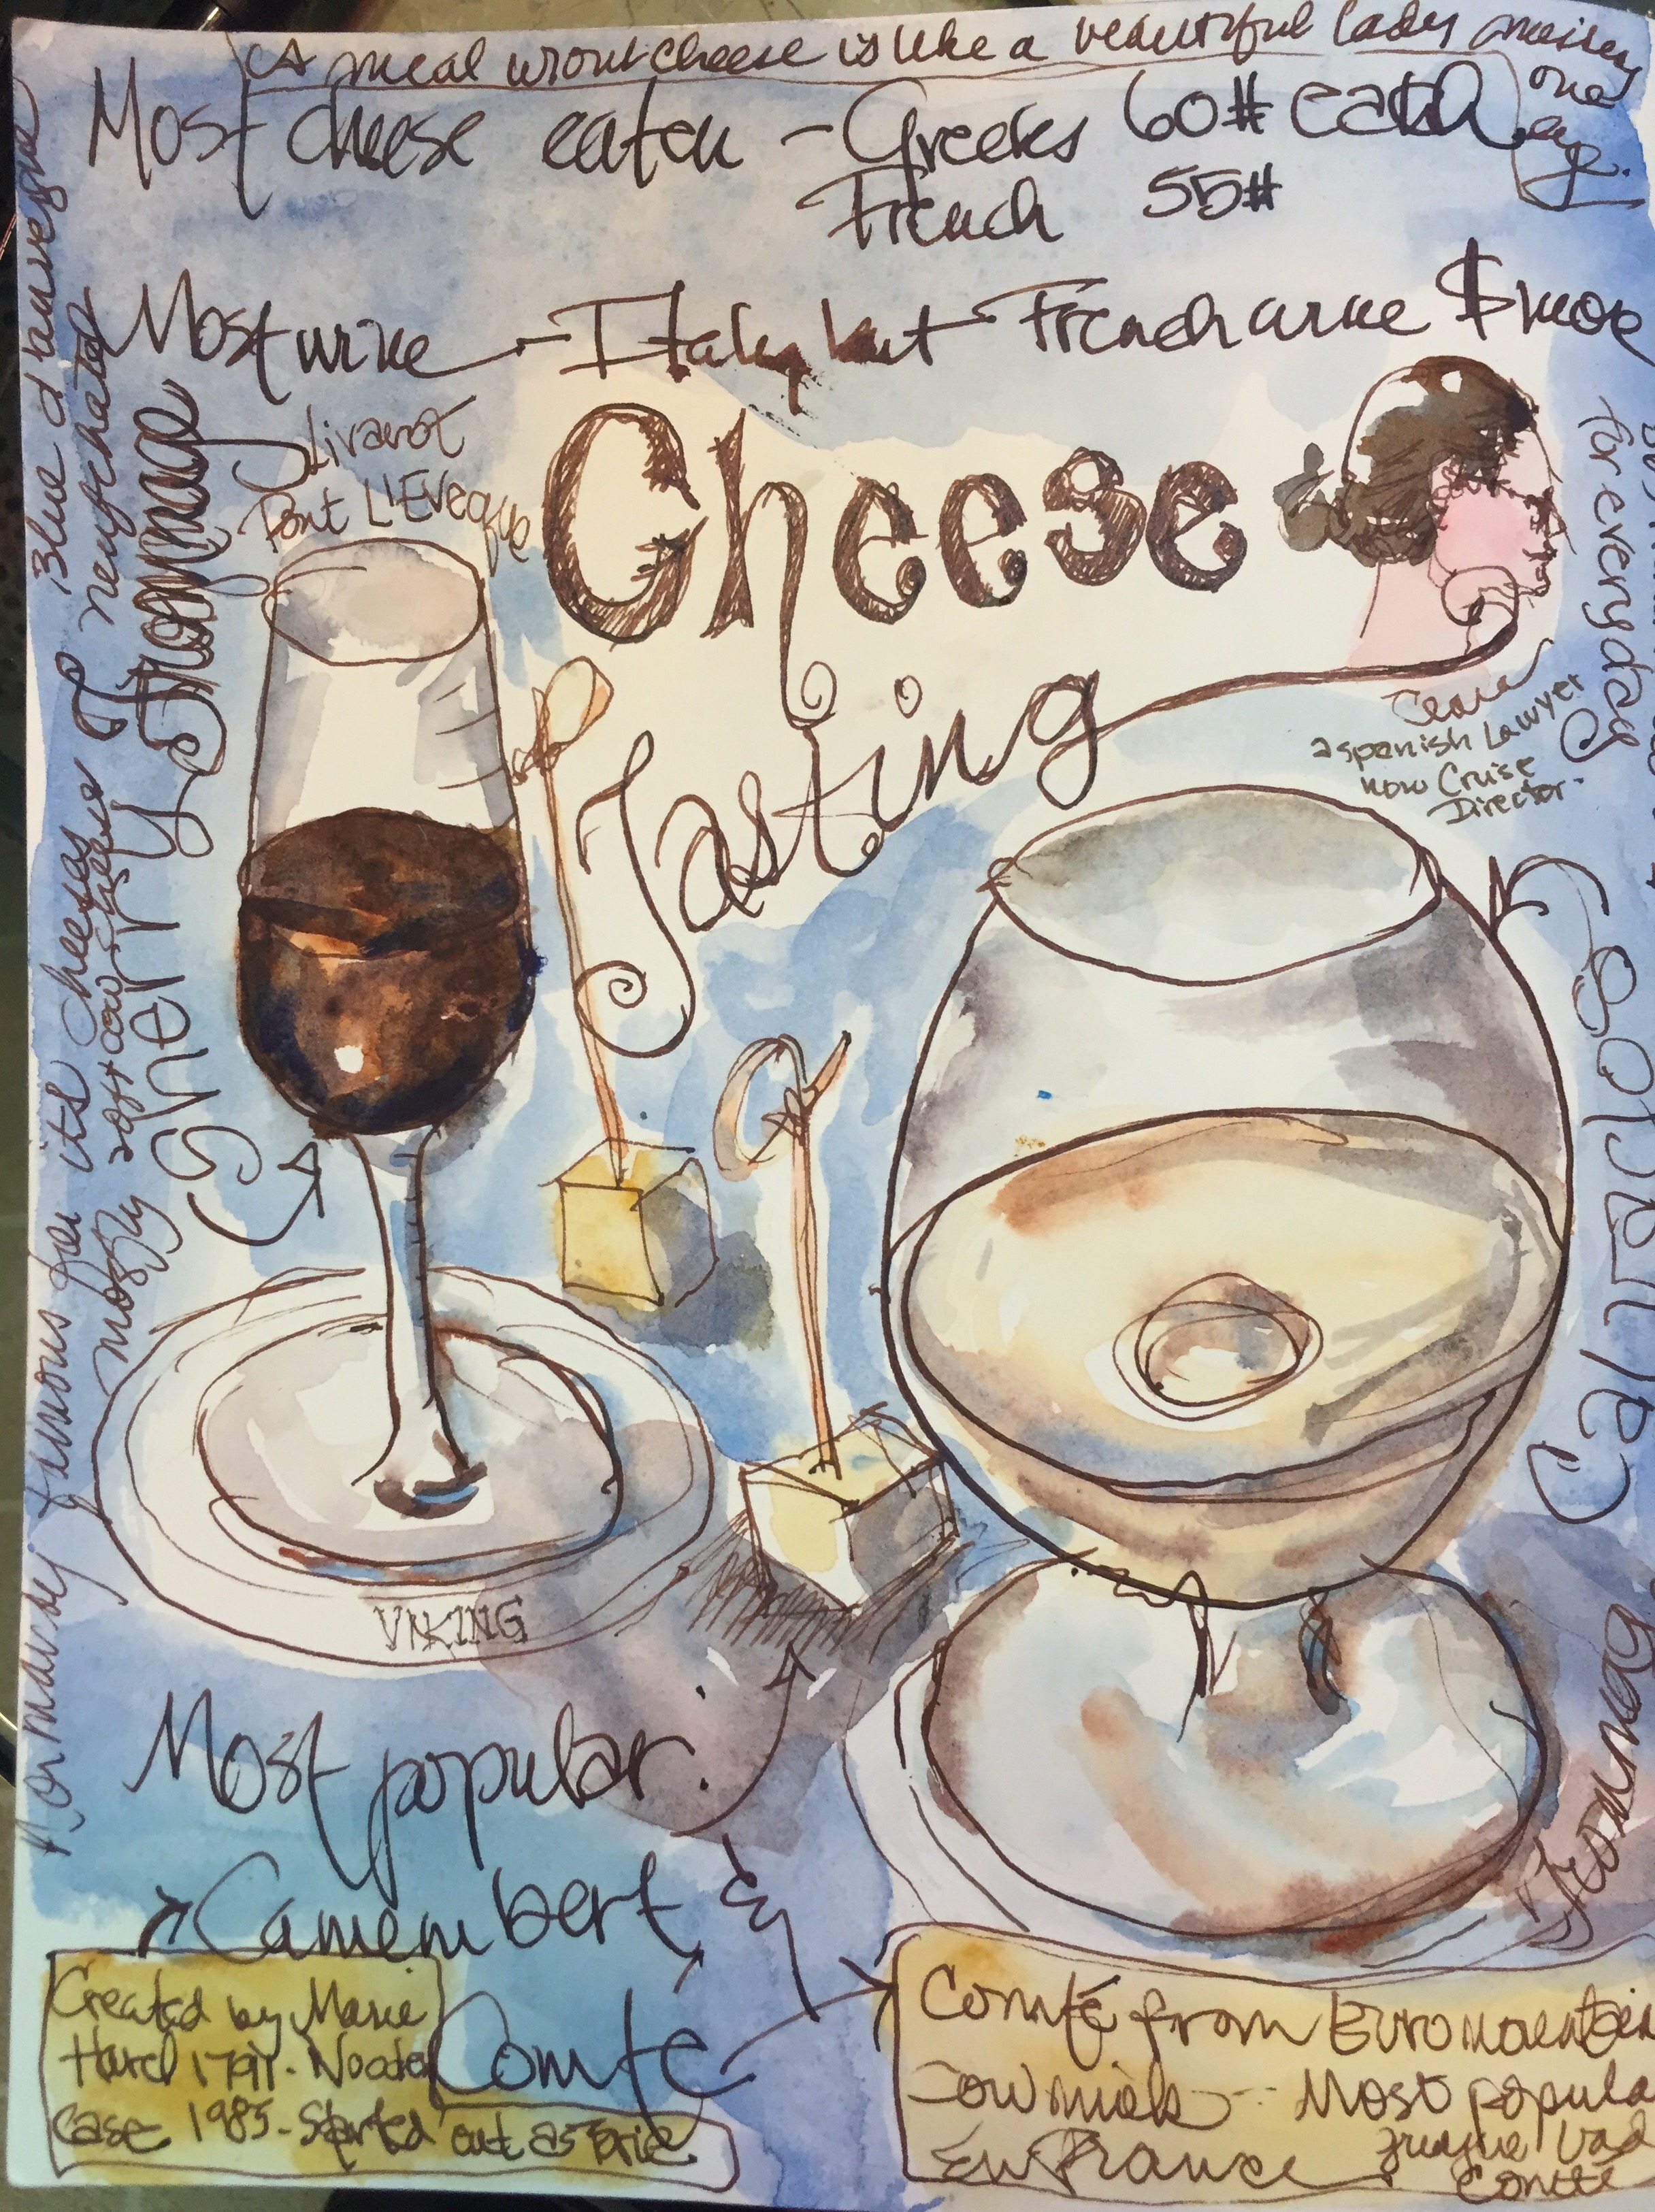 A meal w/out cheese is like a beautiful lady missing
one
eye.
Most cheese eaten - Greeks 60# each
French 55#
Most wine - Italy but French wine $ more
Livarot
Pont L'Eveque
Cheese
Tasting
Fromage
Sherry
Blue d'auvergne
neufchatel
Normandy famous for its cheeses
mostly soft cow cheese
for everyday
a spanish Lawyer
now Cruise
Director.
Calvados
VIKING
Most popular:
Camembert &
Comté
Created by Marie
Harel 1791. Wooden
case 1985. Started out as Brie
Comté from Euro mountain
cow milk -- Most popula
En France
Comté